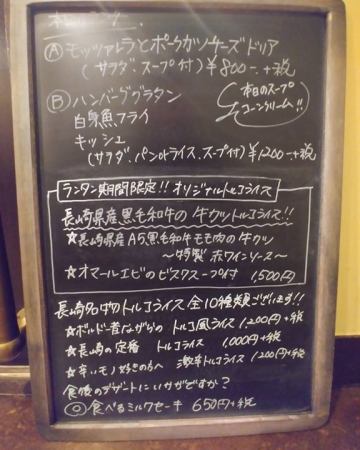 Ⓐ モッツァレラとポークガンサーズドリア
(サラダ、スープ付) ¥800-+税
Ⓑ ハンバーググラタン
本日のスープ
コーンクリーム!!
白身魚フライ
キッシュ
(サラダ、パンorライス、スープ付) ¥1200-+税
ランタン期間限定!! オリジナルトルコライス
長崎県産黒毛和牛の牛カツトルコライス!!
☆長崎県産A5黒毛和牛モモ肉の牛カツ
〜特製 赤ワインソース〜
☆オマールエビのビスクスープ付 1,500円
長崎名物トルコライス全10種類ございます!!
☆ボルドー昔ながらの トルコ風ライス 1,200円+税
☆長崎の定番 トルコライス 1,000円+税
☆辛いモノ好きの方へ 激辛トルコライス 1,200円+税
食後のデザートにいかがですか?
◎食べるミルクセーキ 650円+税